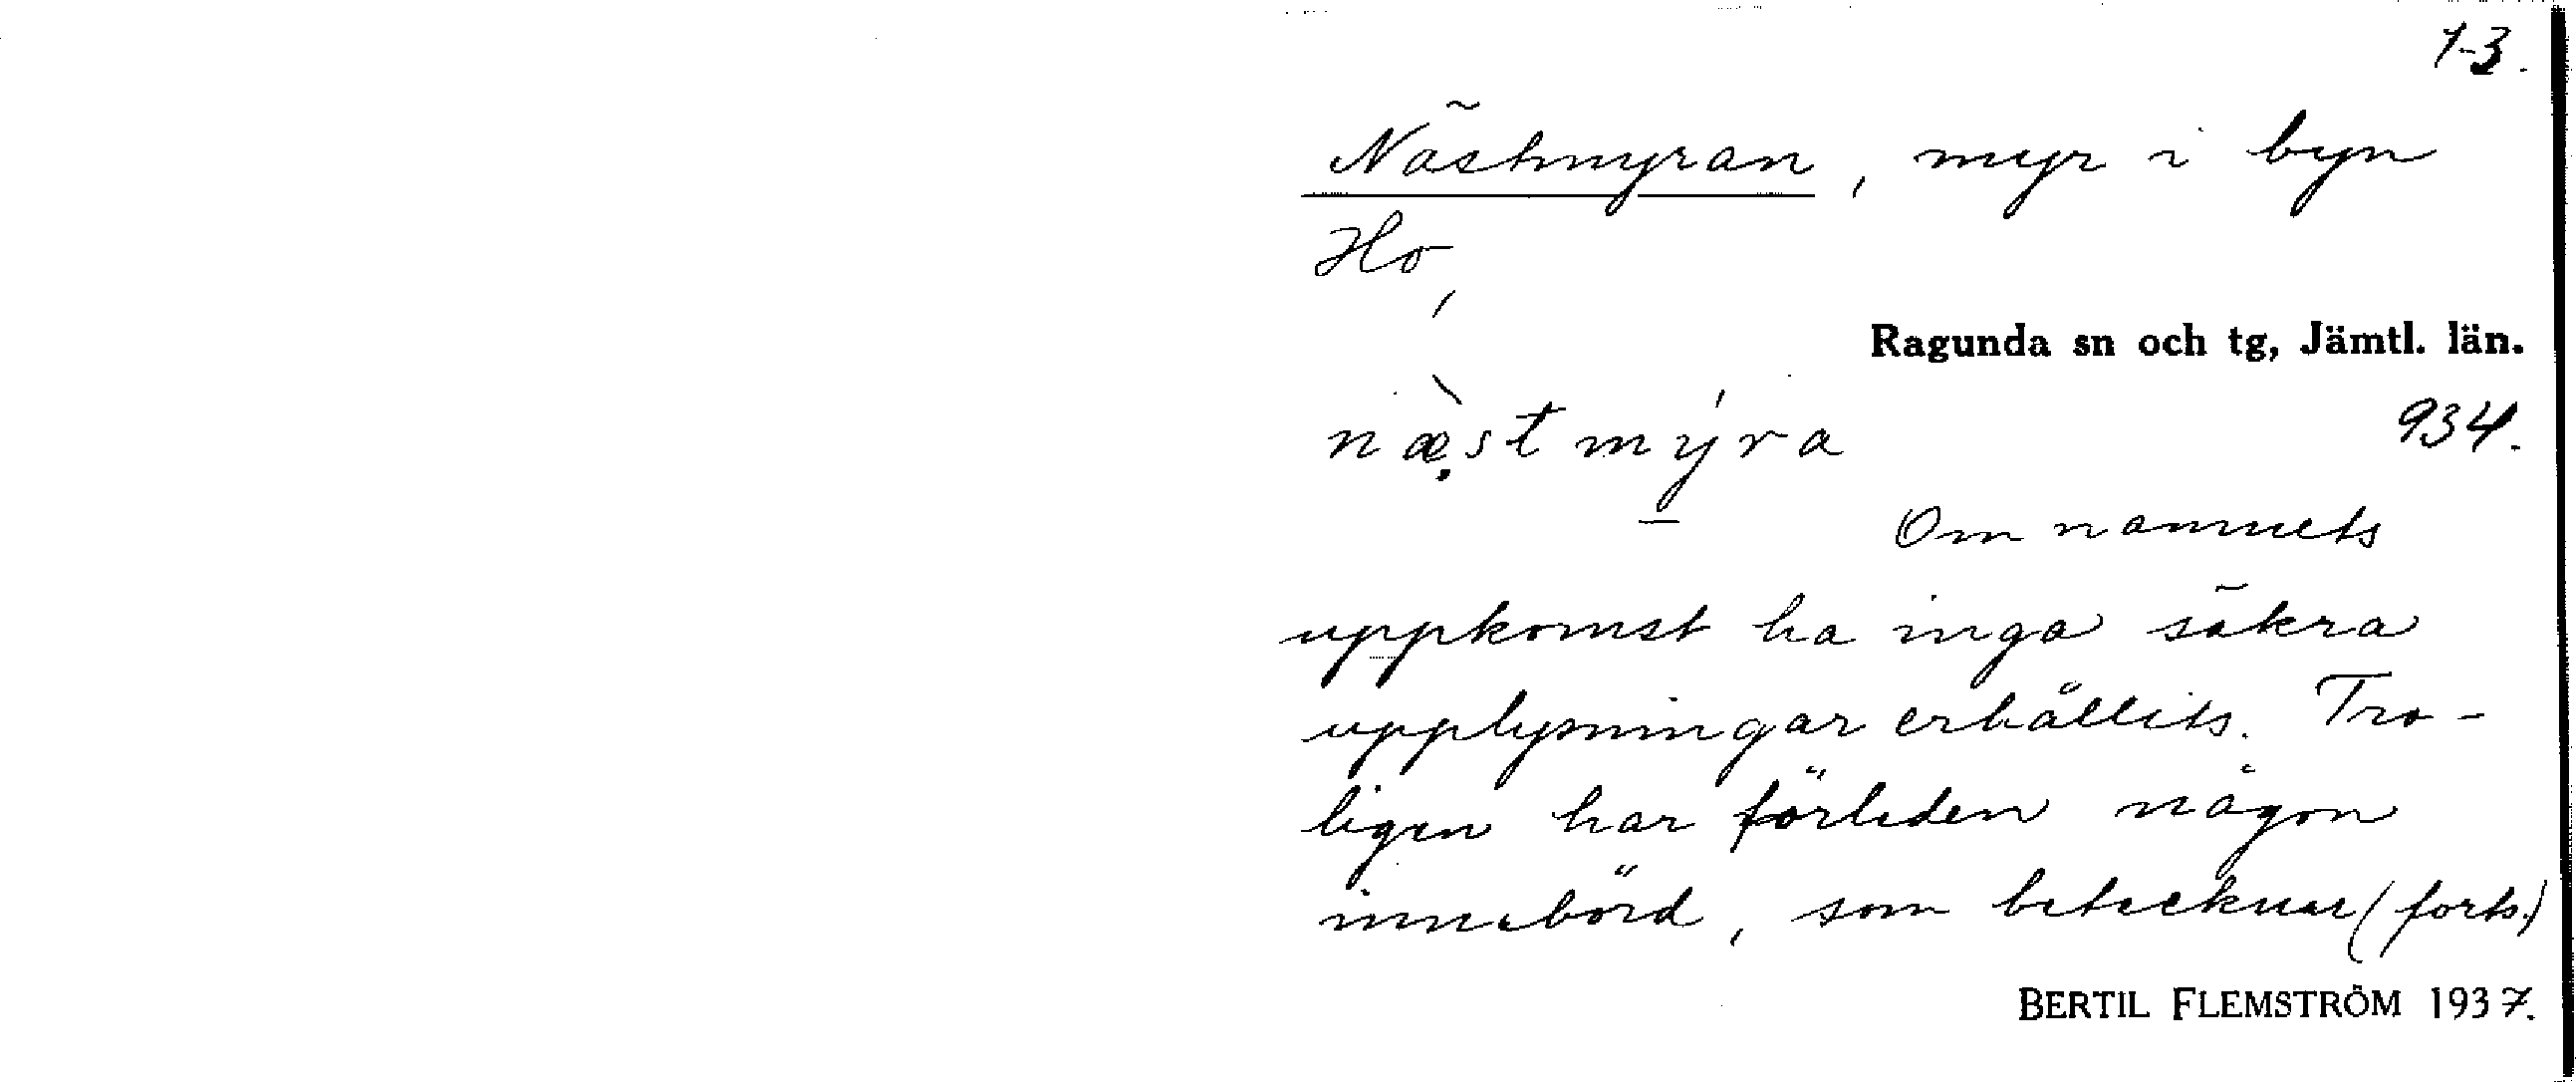 1-3.
Nästmyran, myr i byn
Ho,
Ragunda sn och tg, Jämtl. län.
næ̣̀stmýra
934.
Om namnets
uppkomst ha inga säkra
upplysningar erhållits. Tro-
ligen har förleden någon
innebörd, som betecknar (forts.)
BERTIL FLEMSTRÖM 1937.